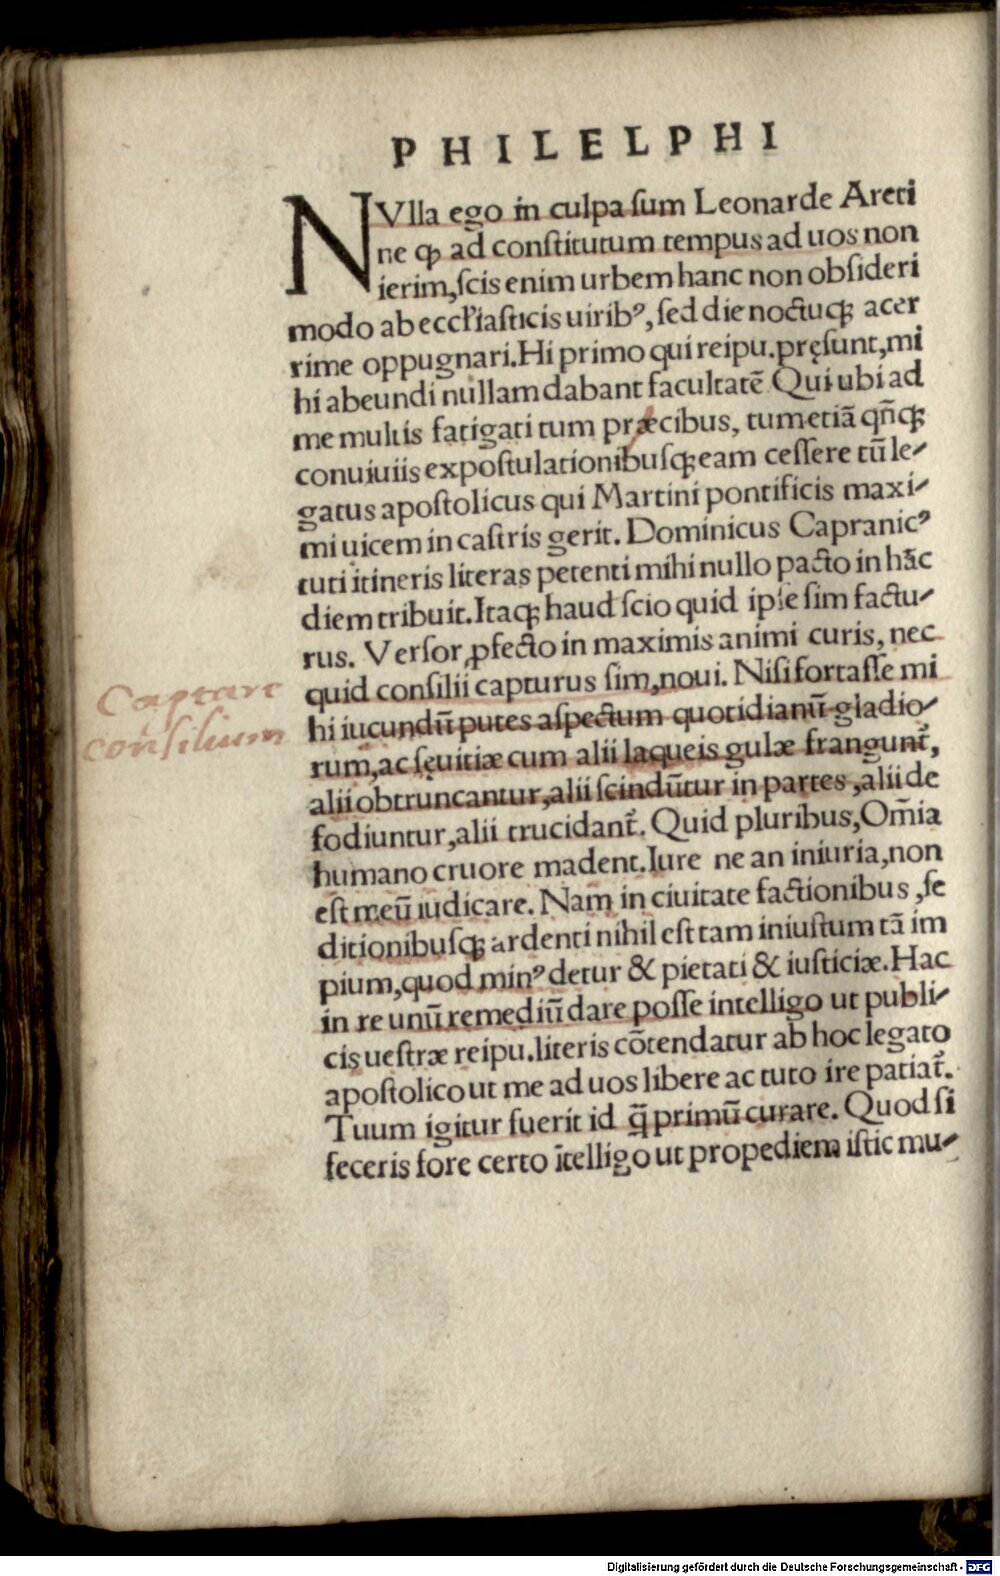 PHILELPHI
NVlla ego in culpa sum Leonarde Areti
ne ꝙ ad constitutum tempus ad uos non
ierim, scis enim urbem hanc non obsideri
modo ab eccl'iasticis uiribꝰ, sed die noctuqꝫ acer
rime oppugnari. Hi primo qui reipu. pręsunt, mi
hi abeundi nullam dabant facultatē Qui ubi ad
me multis fatigati tum præcibus, tum etiā qñqꝫ
conuiuiis expostulationibusqꝫ eam cessere tū le-
gatus apostolicus qui Martini pontificis maxi-
mi uicem in castris gerit. Dominicus Capranicꝰ
tuti itineris literas petenti mihi nullo pacto in hāc
diem tribuit. Itaqꝫ haud scio quid ipse sim factu-
rus. Versor ꝓfecto in maximis animi curis, nec
quid consilii capturus sim, noui. Nisi fortasse mi
hi iucundū putes aspectum quotidianū gladio-
rum, ac sęuitiæ cum alii laqueis gulæ frangunt̄,
alii obtruncantur, alii scindūtur in partes, alii de
fodiuntur, alii trucidant̄. Quid pluribus, Om̄ia
humano cruore madent. Iure ne an iniuria, non
est meū iudicare. Nam in ciuitate factionibus, se
ditionibusqꝫ ardenti nihil est tam iniustum tā im
pium, quod minꝰ detur & pietati & iusticiæ. Hac
in re unū remediū dare posse intelligo ut publi-
cis uestræ reipu. literis cōtendatur ab hoc legato
apostolico ut me ad uos libere ac tuto ire patiat̄.
Tuum igitur fuerit id q̄ primū curare. Quod si
feceris fore certo ītelligo ut propediem istic mu-
Captare
consilium
Digitalisierung gefördert durch die Deutsche Forschungsgemeinschaft - DFG